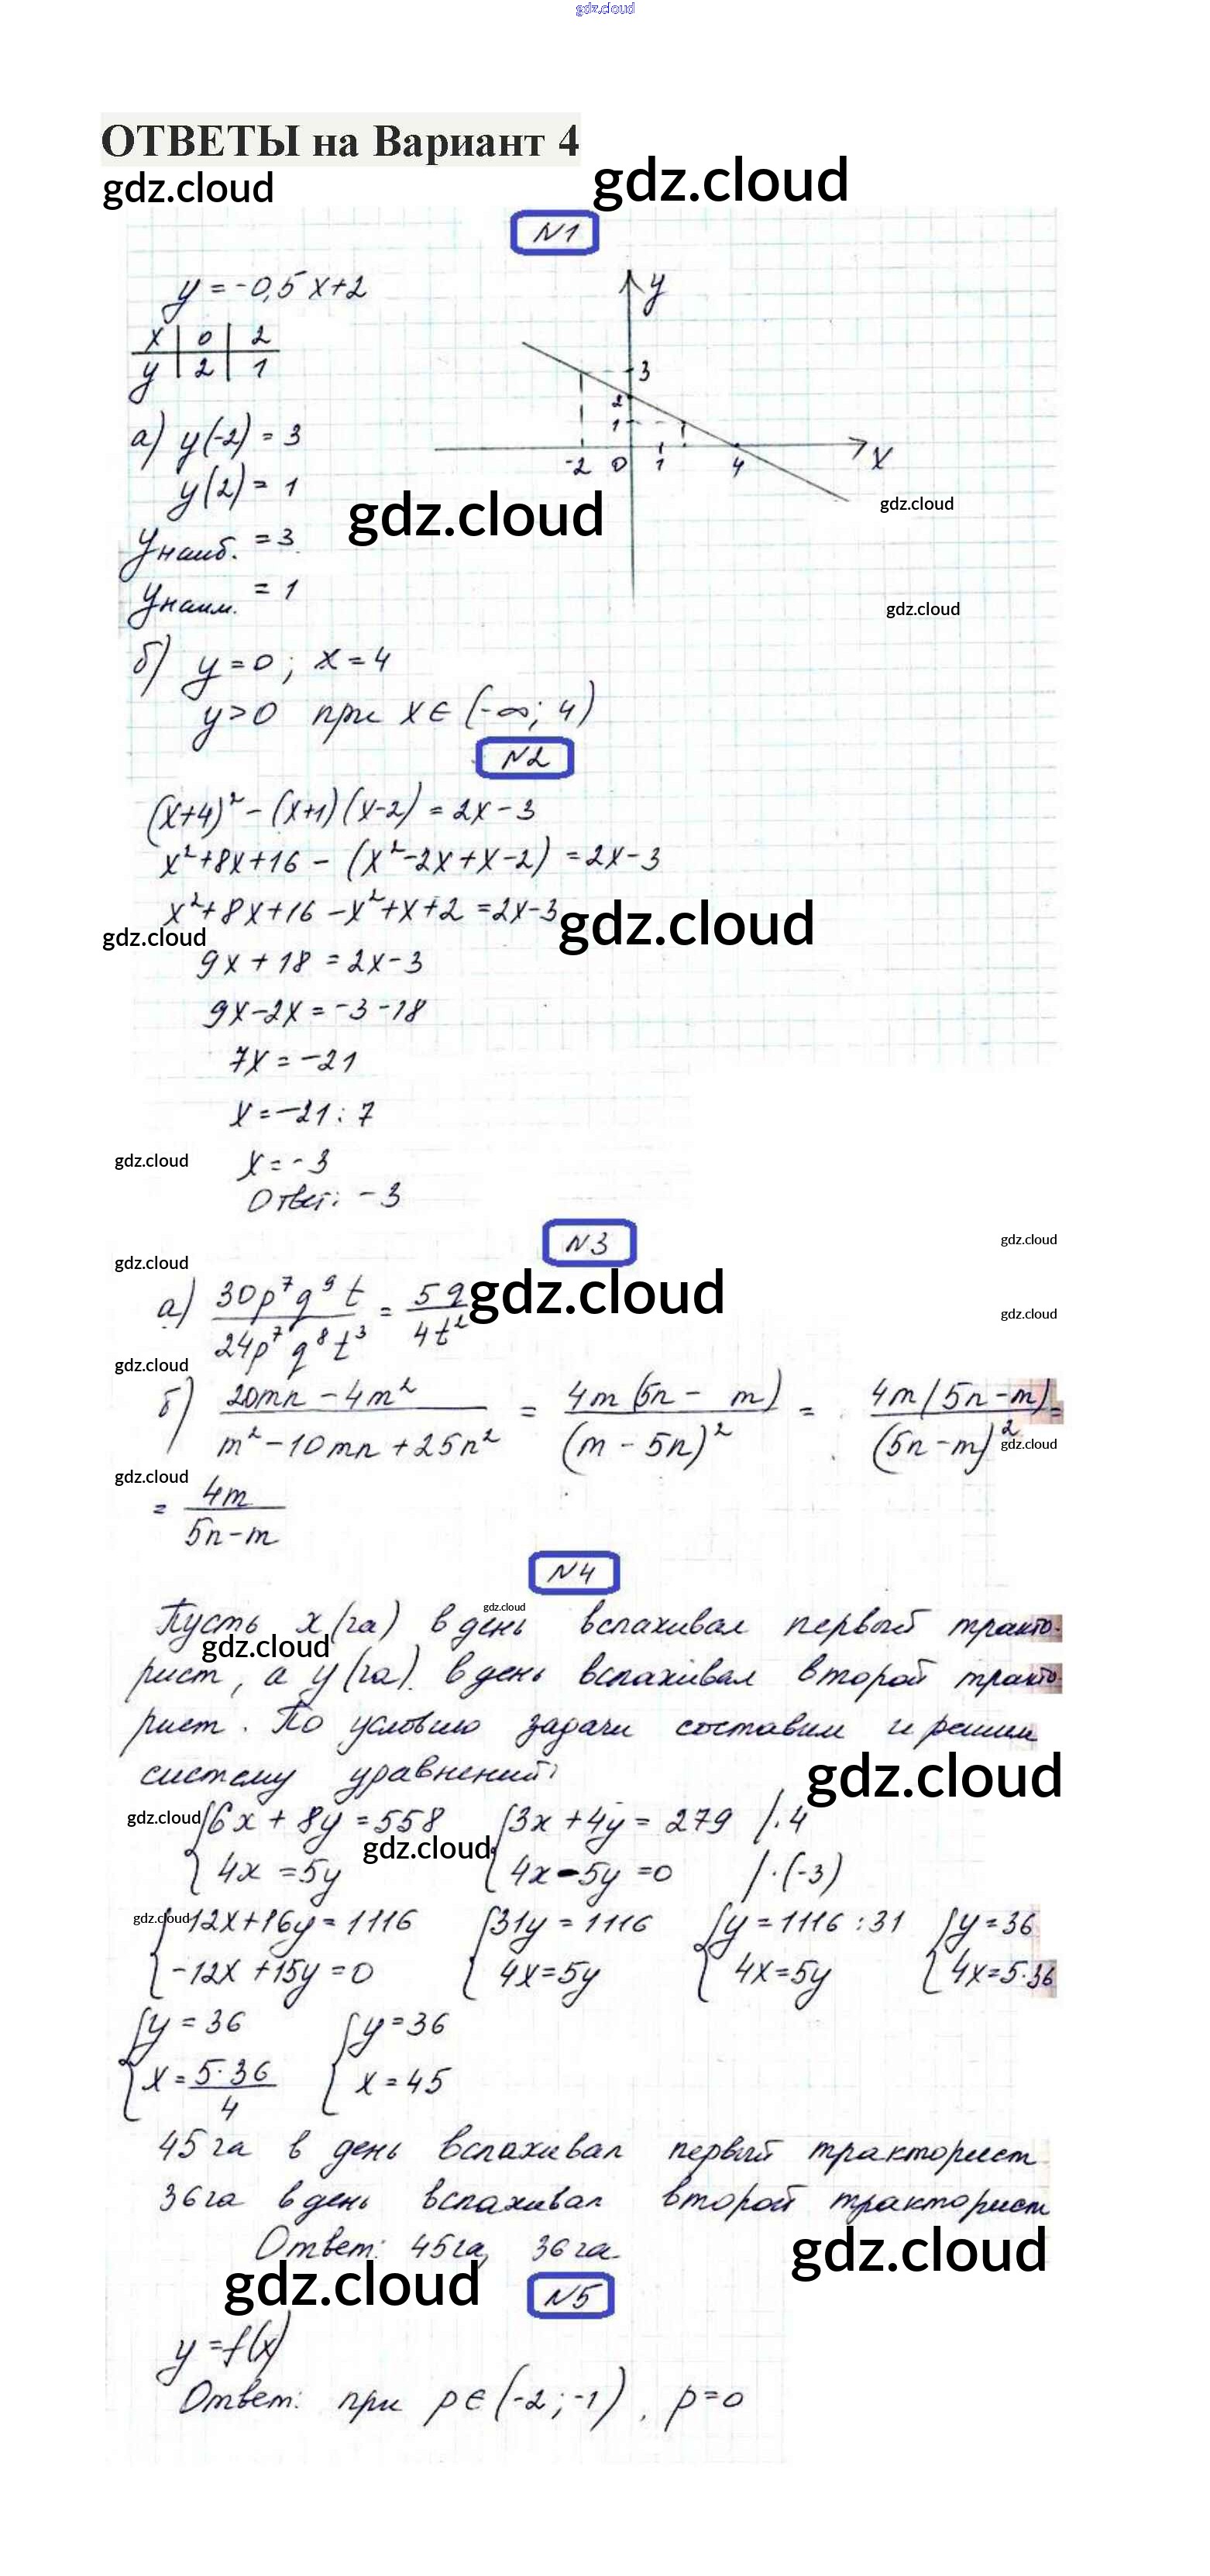 gdz.cloud
ОТВЕТЫ на Вариант 4
gdz.cloud gdz.cloud
N1
y = -0,5x+2
x | 0 | 2
y | 2 | 1
y
3
2
1
-2 0 1 4 x
а) y(-2) = 3
y(2) = 1
gdz.cloud
gdz.cloud
yнаиб. = 3
yнаим. = 1
gdz.cloud
б) y = 0; x = 4
y > 0 при x ∈ (-∞; 4)
N2
(x+4)² - (x+1)(x-2) = 2x - 3
x² + 8x + 16 - (x² - 2x + x - 2) = 2x - 3
x² + 8x + 16 - x² + x + 2 = 2x - 3
gdz.cloud
gdz.cloud
9x + 18 = 2x - 3
9x - 2x = -3 - 18
7x = -21
x = -21 : 7
gdz.cloud
x = -3
Ответ: -3
N3
gdz.cloud
gdz.cloud
а) 30p⁷q⁹t / 24p⁷q⁸t³ = 5q / 4t²
gdz.cloud
gdz.cloud
gdz.cloud
б) 20mn - 4m² / m² - 10mn + 25n² = 4m(5n - m) / (m - 5n)² = 4m(5n - m) / (5n - m)² =
gdz.cloud
gdz.cloud
= 4m / 5n - m
N4
gdz.cloud
Пусть x (га) в день вспахивал первый тракто-
gdz.cloud
рист, а y (га) в день вспахивал второй тракто-
рист. По условию задачи составим и решим
систему уравнений:
gdz.cloud
gdz.cloud
{6x + 8y = 558 {3x + 4y = 279 /·4
gdz.cloud
{4x = 5y {4x - 5y = 0 /·(-3)
gdz.cloud
{12x + 16y = 1116 {31y = 1116 {y = 1116 : 31 {y = 36
{-12x + 15y = 0 {4x = 5y {4x = 5y {4x = 5·36
{y = 36 {y = 36
{x = 5·36 / 4 {x = 45
45 га в день вспахивал первый тракторист
36 га в день вспахивал второй тракторист
Ответ: 45 га, 36 га.
gdz.cloud
gdz.cloud
N5
y = f(x)
Ответ: при p ∈ (-2; -1), p = 0